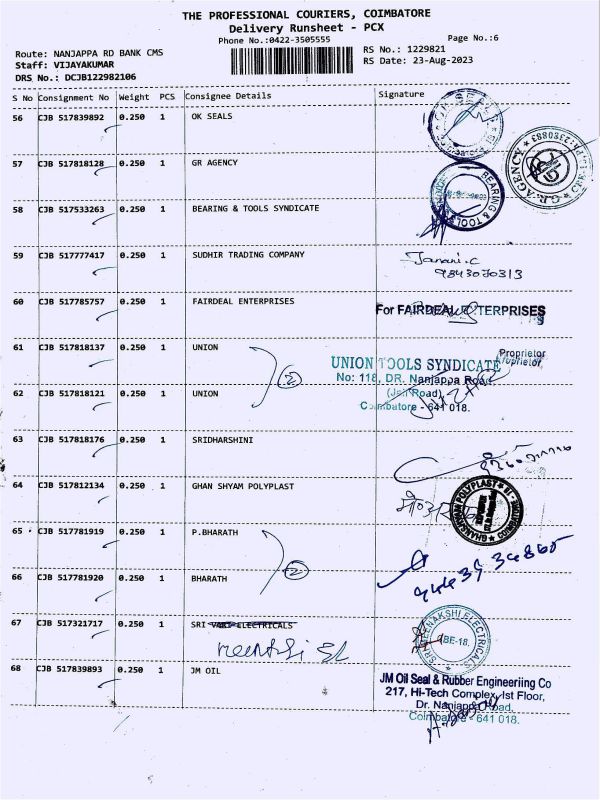 THE PROFESSIONAL COURIERS, COIMBATORE
Delivery Runsheet - PCX
Phone No.:0422-3505555
Page No.:6
Route: NANJAPPA RD BANK CMS
RS No.: 1229821
Staff: VIJAYAKUMAR
RS Date: 23-Aug-2023
DRS No.: DCJB122982106
S No Consignment No Weight PCS Consignee Details Signature
56 CJB 517839892 0.250 1 OK SEALS
57 CJB 517818128 0.250 1 GR AGENCY
G.R.AGENCY
BEARING & TOOLS
58 CJB 517533263 0.250 1 BEARING & TOOLS SYNDICATE
59 CJB 517777417 0.250 1 SUDHIR TRADING COMPANY
Janani.C
9843070313
60 CJB 517785757 0.250 1 FAIRDEAL ENTERPRISES
For FAIRDEAL ENTERPRISES
Proprietor
61 CJB 517818137 0.250 1 UNION
2
UNION TOOLS SYNDICATE
No: 118, DR. Nanjappa Road
(Jail Road),
62 CJB 517818121 0.250 1 UNION
Coimbatore - 641 018.
63 CJB 517818176 0.250 1 SRIDHARSHINI
64 CJB 517812134 0.250 1 GHAN SHYAM POLYPLAST
GHANSHYAM POLYPLAST
65 CJB 517781919 0.250 1 P.BHARATH
2
66 CJB 517781920 0.250 1 BHARATH
67 CJB 517321717 0.250 1 SRI VARI ELECTRICALS
SRI MEENAKSHI ELECTRICALS
CBE-18.
68 CJB 517839893 0.250 1 JM OIL
JM Oil Seal & Rubber Engineeriing Co
217, Hi-Tech Complex, Ist Floor,
Dr. Nanjappa Road,
Coimbatore - 641 018.